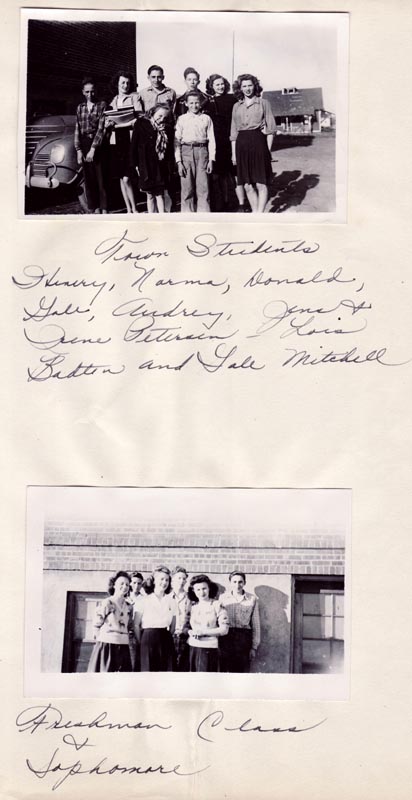 Town Students
Henry, Norma, Donald,
Gale, Audrey, Jens &
Irene Petersen - Lois
Badten and Gale Mitchell
Freshman Class
&
Sophomore